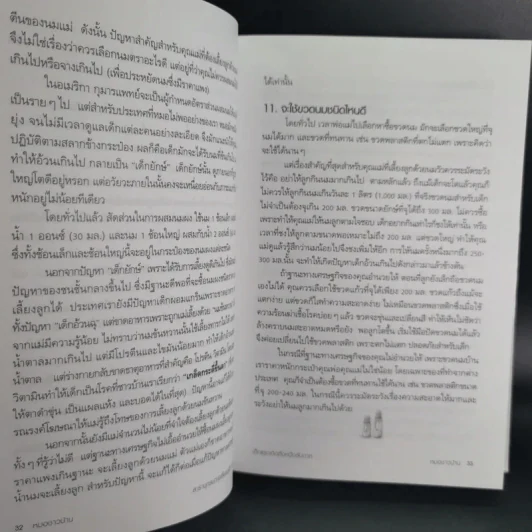 ตีนของนมแม่ ดังนั้น ปัญหาสำคัญสำหรับคุณแม่ที่ต้องเลี้ยงลูก
จึงไม่ใช่เรื่องว่าควรเลือกนมตราอะไรดี แต่อยู่ที่ว่าคุณไม่ควร
เกินไปหรือจางเกินไป (เพื่อประหยัดนมซึ่งมีราคาแพง)
ในอเมริกา กุมารแพทย์จะเป็นผู้กำหนดอัตราส่วน
เป็นรายๆ ไป แต่สำหรับประเทศที่หมอไม่พออย่างของเรา
ยุ่ง จนไม่มีเวลาดูแลเด็กแต่ละคนอย่างละเอียด จึงมัก
ปฏิบัติตามสลากข้างกระป๋อง ผลก็คือเด็กมักจะได้รับนม
ทำให้อ้วนเกินไป กลายเป็น "เด็กยักษ์" เด็กยักษ์นั้น ดูภายนอก
ใหญ่โตดีอยู่หรอก แต่อวัยวะภายในนั้นคงจะเหนื่อยอ่อนกับการ
หนักอยู่ไม่น้อยทีเดียว
โดยทั่วไปแล้ว สัดส่วนในการผสมนมผง ใช้นม 1 ช้อนเล็ก
น้ำ 1 ออนซ์ (30 มล.) และนม 1 ช้อนใหญ่ ผสมกับน้ำ 2 ออนซ์
ซึ่งทั้งช้อนเล็กและช้อนใหญ่นี้จะอยู่ในกระป๋องของนมผงแต่ละชนิด
นอกจากปัญหา "เด็กยักษ์" เพราะได้รับการเลี้ยงดูดีเกินไป ซึ่งเป็น
ปัญหาของชนชั้นกลางขึ้นไป ซึ่งมีฐานะดีพอที่จะซื้อนมผงมา
เลี้ยงลูกได้ ประเทศเรายังมีปัญหาเด็กผอมแกร็น
ทั้งปัญหา "เด็กอ้วนฉุ" แต่ขาดอาหารเพราะถูกแม่เลี้ยงด้วยนมข้นหวาน
จากแม่มีความรู้น้อย ไม่ทราบว่านมข้นหวานนั้นใช้เลี้ยงทารกไม่ได้
น้ำตาลมากเกินไป แต่มีโปรตีนและไขมันน้อยมาก ทำให้เด็กอ้วน
น้ำตาล แต่ร่างกายกลับขาดธาตุอาหารที่สำคัญคือ โปรตีน
วิตามินทำให้เด็กเป็นโรคที่ชาวบ้านเราเรียกว่า "เกล็ดกระดี่ขึ้นตา"
ให้ตาดำขุ่น เป็นแผลแห้ง และบอดได้ในที่สุด) ปัญหานี้
รณรงค์โฆษณาให้แม่รู้ถึงโทษของการเลี้ยงลูกด้วยนมข้นหวาน
นอกจากนั้นยังมีแม่จำนวนไม่น้อยที่จำใจต้องเลี้ยงลูก
ทั้งๆ ที่รู้ว่าไม่ดี แต่ฐานะทางเศรษฐกิจไม่เอื้ออำนวยให้ซื้อ
ราคาแพงเกินฐานะ จะเลี้ยงลูกด้วยนมแม่ ตัวแม่เอง
น้ำนมจะเลี้ยงลูก สำหรับปัญหานี้ จะแก้ได้ก็ต่อเมื่อแก้ปัญหา
52 หมอชาวบ้าน
ได้เท่านั้น
11. จะใช้ขวดนมชนิดไหนดี
โดยทั่วไป เวลาพ่อแม่ไปเลือกหาซื้อขวดนม มักจะเลือกขวดใหญ่ที่จุ
นมได้มาก และขวดที่ทนทาน เช่น ขวดพลาสติกที่ตกไม่แตก เพราะคิดว่า
จะใช้ได้นานๆ
แต่เรื่องสำคัญที่สุดสำหรับคุณแม่ที่เลี้ยงลูกด้วยนมวัวควรระมัดระวัง
ไว้คือ อย่าให้ลูกกินนมมากเกินไป ตามหลักแล้ว ถึงแม้เด็กจะโตแล้วคุณก็
ไม่ควรให้ลูกกินนมเกินวันละ 1 ลิตร (1,000 มล.) ที่จริงขวดนมสำหรับเด็ก
ไม่จำเป็นต้องจุเกิน 200 มล. ขวดขนาดยักษ์ที่จุได้ถึง 300 มล. ไม่ควรซื้อ
เพราะทำให้คุณแม่ให้นมลูกตามใจชอบ เด็กอยากกินเท่าไรก็ชงให้เท่านั้น หรือ
เวลาที่ชงให้ลูกตามขนาดพอเหมาะไม่ถึง 200 มล. แต่ขวดใหญ่ ทำให้คุณ
แม่ดูแล้วรู้สึกว่านมน้อยไปจึงชงเพิ่มให้อีก การให้นมครั้งหนึ่งมากถึง 250-
300 มล.นั้น จะทำให้เกิดปัญหาเด็กอ้วนเกินไปดังกล่าวมาแล้วข้างต้น
ถ้าฐานะทางเศรษฐกิจของคุณอำนวยให้ ตอนที่ลูกยังเล็กถือขวดนม
เองไม่ได้ คุณควรเลือกใช้ขวดแก้วที่จุได้เพียง 200 มล. ขวดแก้วถึงแม้จะ
แตกง่าย แต่ขวดก็ใสทำความสะอาดง่าย ไม่เหมือนขวดพลาสติกซึ่งเมื่อใช้
ความร้อนฆ่าเชื้อโรคบ่อย ๆ แล้ว ขวดจะขุ่นและเปลี่ยนสี ทำให้เห็นไม่ชัดว่า
ล้างคราบนมสะอาดหมดหรือยัง พอลูกโตขึ้น เริ่มใช้มือปัดขวดนมได้แล้ว
จึงค่อยเปลี่ยนไปใช้ขวดพลาสติก เพราะตกไม่แตก ปลอดภัยสำหรับเด็ก
ในกรณีที่ฐานะทางเศรษฐกิจของคุณไม่อำนวยให้ เพราะขวดนมบ้าน
เราราคาหนักกระเป๋าคุณพ่อคุณแม่ไม่น้อย โดยเฉพาะของที่ทำจากต่าง
ประเทศ คุณก็จำเป็นต้องซื้อขวดที่ทนทานใช้ได้นาน เช่น ขวดพลาสติกขนาด
ที่จุ 200-240 มล. ในกรณีนี้ควรระมัดระวังเรื่องความสะอาดให้มากและ
ระวังอย่าให้นมลูกมากเกินไปด้วย
หมอชาวบ้าน 53